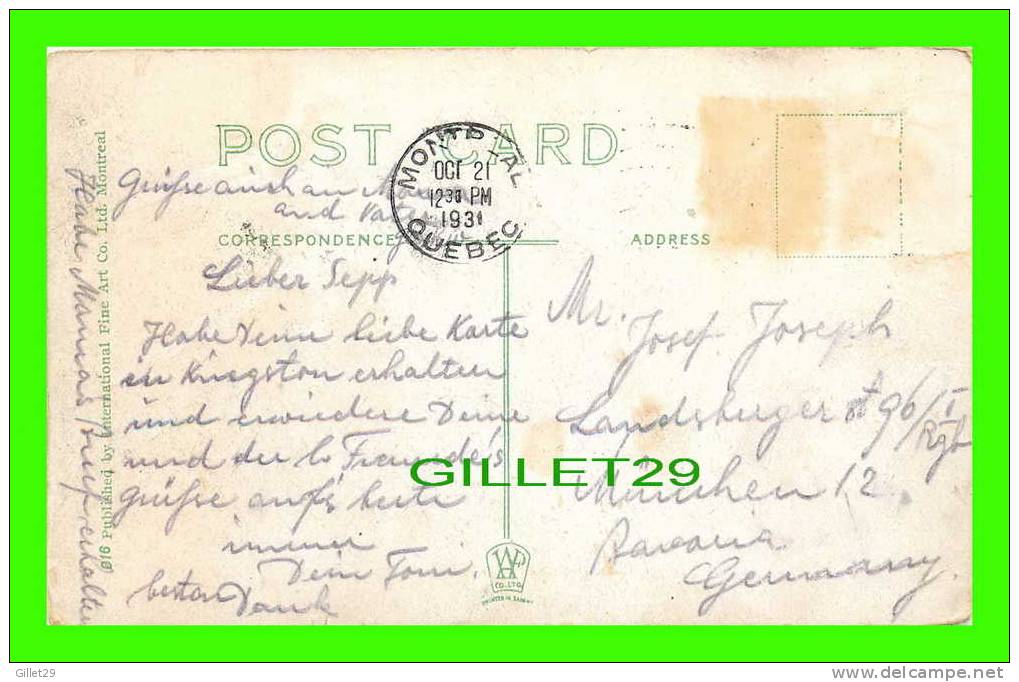 POST CARD
MONTREAL
OCT 21
12 30 PM
1931
QUEBEC
Grüsse auch an Mama
and Vater
CORRESPONDENCE
ADDRESS
Lieber Sepp
Habe Deine liebe Karte
in Kingston erhalten
und erwiedere Deine
und der lb Freunde's
Grüsse auf's beste
immer
Dein Toni.
besten Dank
Habe Mamas Brief erhalten
916 Published by International Fine Art Co. Ltd. Montreal
Mr. Josef Joseph
Landsberger st 96/I
Rgb
München 12
Bavaria
Germany.
GILLET29
CO. LTD.
Gillet29
http://www.delcampe.net